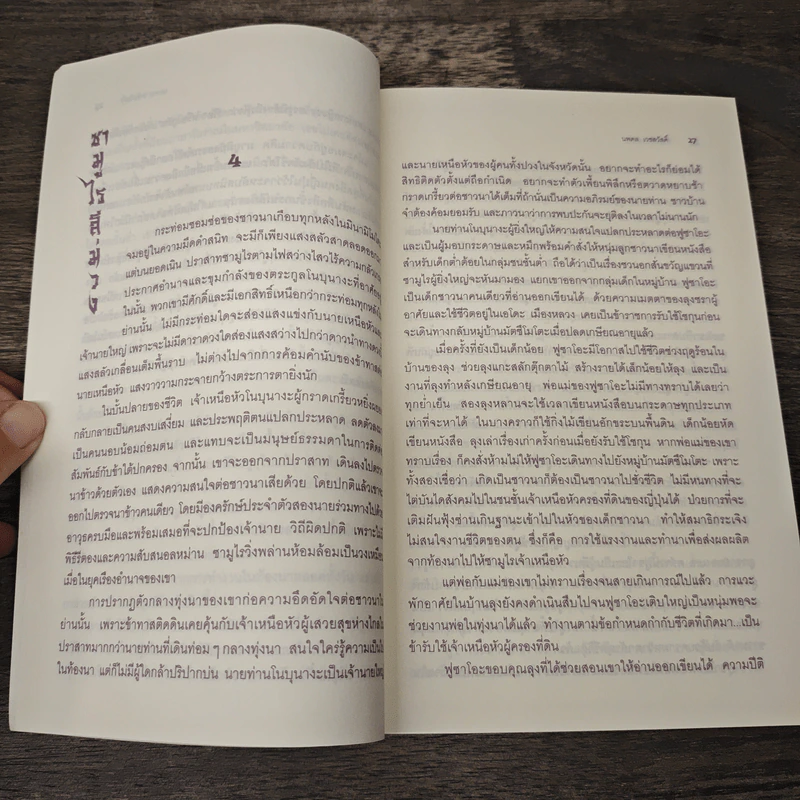 ซามูไรสีม่วง
4
กระท่อมซอมซ่อของชาวนาเกือบทุกหลังในมินามิโม
จมอยู่ในความมืดดำสนิท จะมีก็เพียงแสงสลัวสาดลอดออก
แต่บนยอดเนิน ปราสาทซามูไรตามไฟสว่างไสวไร้ความกลัว
ประกาศอำนาจและขุมกำลังของตระกูลโนบุนางะที่อาศัย
ในนั้น พวกเขามีศักดิ์และมีเอกสิทธิ์เหนือกว่ากระท่อมทุกหลัง
ย่านนั้น ไม่มีกระท่อมใดจะส่องแสงแข่งกับนายเหนือหัว
เจ้านายใหญ่ เพราะจะไม่มีดาราดวงใดส่องแสงสว่างไปกว่าดาวนำทางดวง
แสงสลัวเกลื่อนเต็มพื้นราบ ไม่ต่างไปจากการค้อมคำนับของข้าทาส
นายเหนือหัว แสงวาววามกระจายกว้างตระการตายิ่งนัก
ในบั้นปลายของชีวิต เจ้าเหนือหัวโนบุนางะผู้กราดเกรี้ยวหยิ่งผยอง
กลับกลายเป็นคนสงบเสงี่ยม และประพฤติตนแปลกประหลาด ลดตัวลง
เป็นคนนอบน้อมถ่อมตน และแทบจะเป็นมนุษย์ธรรมดาในการติดต่อ
สัมพันธ์กับข้าใต้ปกครอง จากนั้น เขาจะออกจากปราสาท เดินลงไปตรวจ
นาข้าวด้วยตัวเอง แสดงความสนใจต่อชาวนาเสียด้วย โดยปกติแล้วเขา
ออกไปตรวจนาข้าวคนเดียว โดยมีองครักษ์ประจำตัวสองนายร่วมทางไป
อาวุธครบมือและพร้อมเสมอที่จะปกป้องเจ้านาย วิถีผิดปกติ เพราะไม่
พิธีรีตองและความสับสนอลหม่าน ซามูไรวิ่งพล่านห้อมล้อมเป็นวงเหมือน
เมื่อในยุคเรืองอำนาจของเขา
การปรากฏตัวกลางทุ่งนาของเขาก่อความอึดอัดใจต่อชาวนาใน
ย่านนั้น เพราะข้าทาสติดดินเคยคุ้นกับเจ้าเหนือหัวผู้เสวยสุขห่างไกลใน
ปราสาทมากกว่านายท่านที่เดินท่อม ๆ กลางทุ่งนา สนใจใคร่รู้ความเป็นไป
ในท้องนา แต่ก็ไม่มีผู้ใดกล้าปริปากบ่น นายท่านโนบุนางะเป็นเจ้านายใหญ่
นพดล เวชสวัสดิ์ 27
และนายเหนือหัวของผู้คนทั้งปวงในจังหวัดนั้น อยากจะทำอะไรก็ย่อมได้
สิทธิติดตัวตั้งแต่ถือกำเนิด อยากจะทำตัวเพี้ยนพิลึกหรือตวาดหยาบช้า
กราดเกรี้ยวต่อชาวนาได้เต็มที่ถ้านั่นเป็นความอภิรมย์ของนายท่าน ชาวบ้าน
จำต้องค้อมยอมรับ และภาวนาว่าการพบปะกันจะยุติลงในเวลาไม่นานนัก
นายท่านโนบุนางะผู้ยิ่งใหญ่ให้ความสนใจแปลกประหลาดต่อฟูซาโอะ
และเป็นผู้มอบกระดาษและหมึกพร้อมคำสั่งให้หนุ่มลูกชาวนาเขียนหนังสือ
สำหรับเด็กต่ำต้อยในกลุ่มชนชั้นต่ำ ถือได้ว่าเป็นเรื่องชวนอกสั่นขวัญแขวนที่
ซามูไรผู้ยิ่งใหญ่จะหันมามอง แยกเขาออกจากกลุ่มเด็กในหมู่บ้าน ฟูซาโอะ
เป็นเด็กชาวนาคนเดียวที่อ่านออกเขียนได้ ด้วยความเมตตาของลุงชราผู้
อาศัยและใช้ชีวิตอยู่ในเอโดะ เมืองหลวง เคยเป็นข้าราชการรับใช้โชกุนก่อน
จะเดินทางกลับหมู่บ้านมัตซึโมโตะเมื่อปลดเกษียณอายุแล้ว
เมื่อครั้งที่ยังเป็นเด็กน้อย ฟูซาโอะมีโอกาสไปใช้ชีวิตช่วงฤดูร้อนใน
บ้านของลุง ช่วยลุงแกะสลักตุ๊กตาไม้ สร้างรายได้เล็กน้อยให้ลุง และเป็น
งานที่ลุงทำหลังเกษียณอายุ พ่อแม่ของฟูซาโอะไม่มีทางทราบได้เลยว่า
ทุกย่ำเย็น สองลุงหลานจะใช้เวลาเขียนหนังสือบนกระดาษทุกประเภท
เท่าที่จะหาได้ ในบางคราวก็ใช้กิ่งไม้เขียนอักขระบนพื้นดิน เด็กน้อยหัด
เขียนหนังสือ ลุงเล่าเรื่องเก่าครั้งก่อนเมื่อยังรับใช้โชกุน หากพ่อแม่ของเขา
ทราบเรื่อง ก็คงสั่งห้ามไม่ให้ฟูซาโอะเดินทางไปยังหมู่บ้านมัตซึโมโตะ เพราะ
ทั้งสองเชื่อว่า เกิดเป็นชาวนาก็ต้องเป็นชาวนาไปชั่วชีวิต ไม่มีหนทางที่จะ
ไต่บันไดสังคมไปในชนชั้นเจ้าเหนือหัวครองที่ดินของญี่ปุ่นได้ ป่วยการที่จะ
เติมฝันฟุ้งซ่านเกินฐานะเข้าไปในหัวของเด็กชาวนา ทำให้สมาธิกระเจิง
ไม่สนใจงานชีวิตของตน ซึ่งก็คือ การใช้แรงงานและทำนาเพื่อส่งผลผลิต
จากท้องนาไปให้ซามูไรเจ้าเหนือหัว
แต่พ่อกับแม่ของเขาไม่ทราบเรื่องจนสายเกินการณ์ไปแล้ว การแวะ
พักอาศัยในบ้านลุงยังคงดำเนินสืบไปจนฟูซาโอะเติบใหญ่เป็นหนุ่มพอจะ
ช่วยงานพ่อในทุ่งนาได้แล้ว ทำงานตามข้อกำหนดกำกับชีวิตที่เกิดมา...เป็น
ข้ารับใช้เจ้าเหนือหัวผู้ครองที่ดิน
ฟูซาโอะขอบคุณลุงที่ได้ช่วยสอนเขาให้อ่านออกเขียนได้ ความปีติ